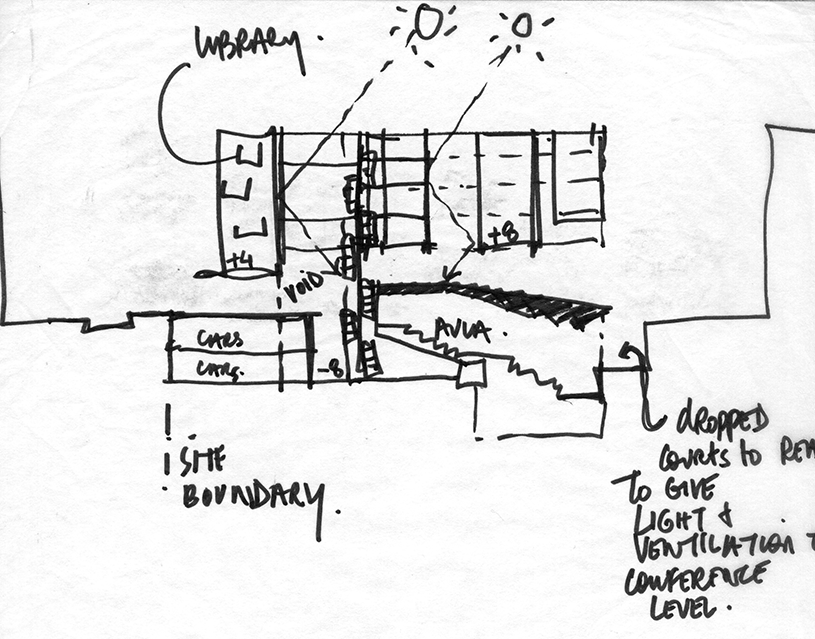 LIBRARY.
+4
VOID
+8
CARS
CARS.
-8
AULA.
SITE
BOUNDARY.
DROPPED
COURTS TO
TO GIVE
LIGHT &
VENTILATION
CONFERENCE
LEVEL.